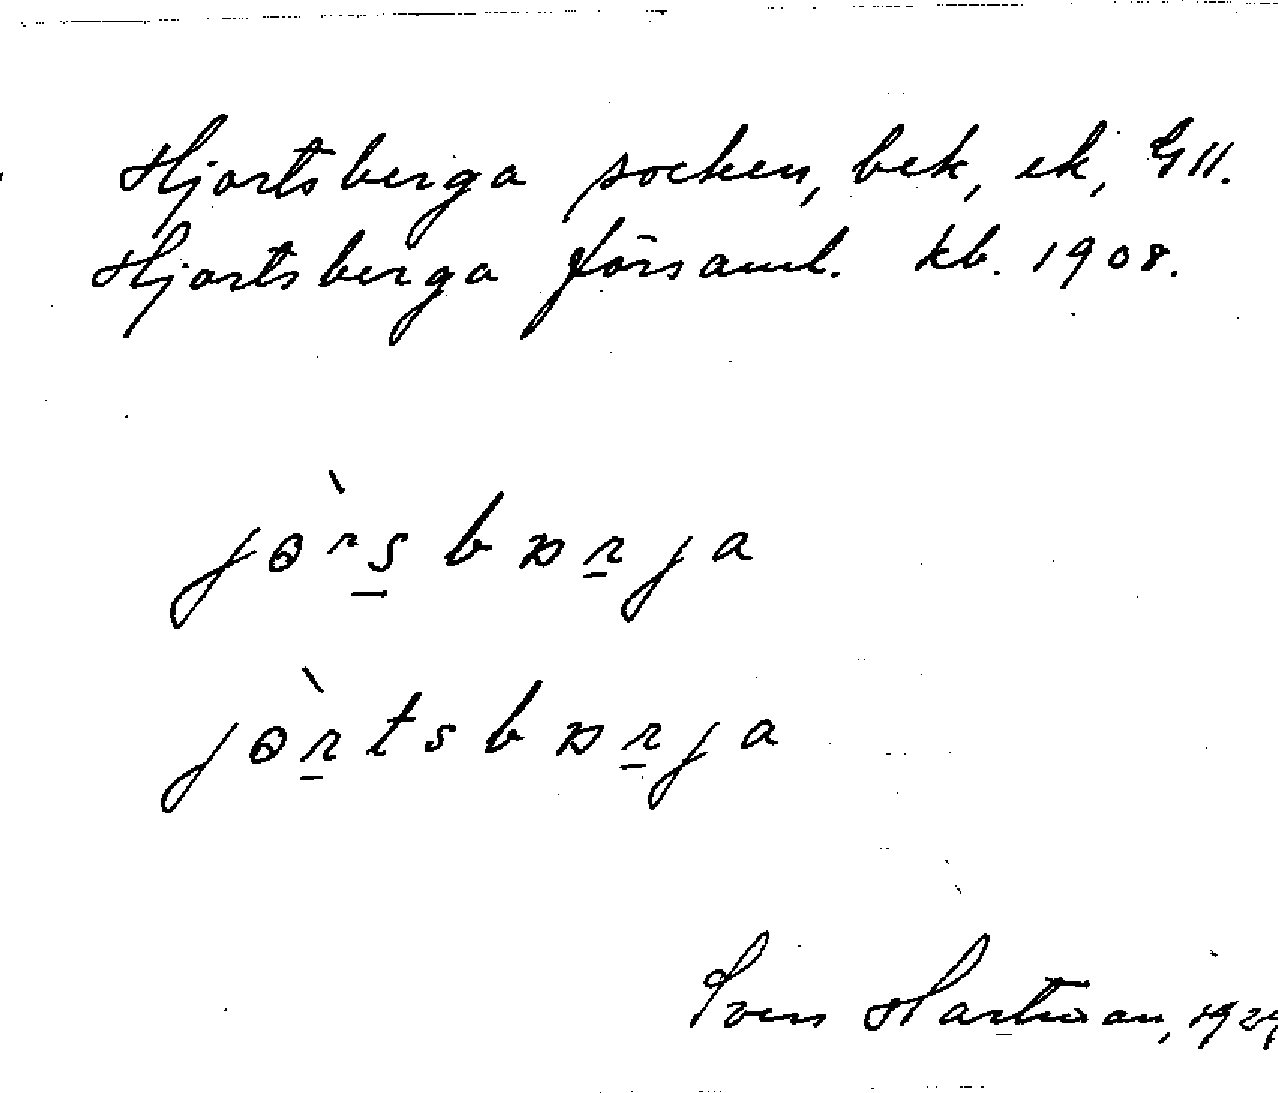 Hjortsberga socken, bek, ek, G II.
Hjortsberga församl. kb. 1908.
jɵ̀rs̱bæṟja
jɵ̀ṟtsbæṟja
Sven Hartman,